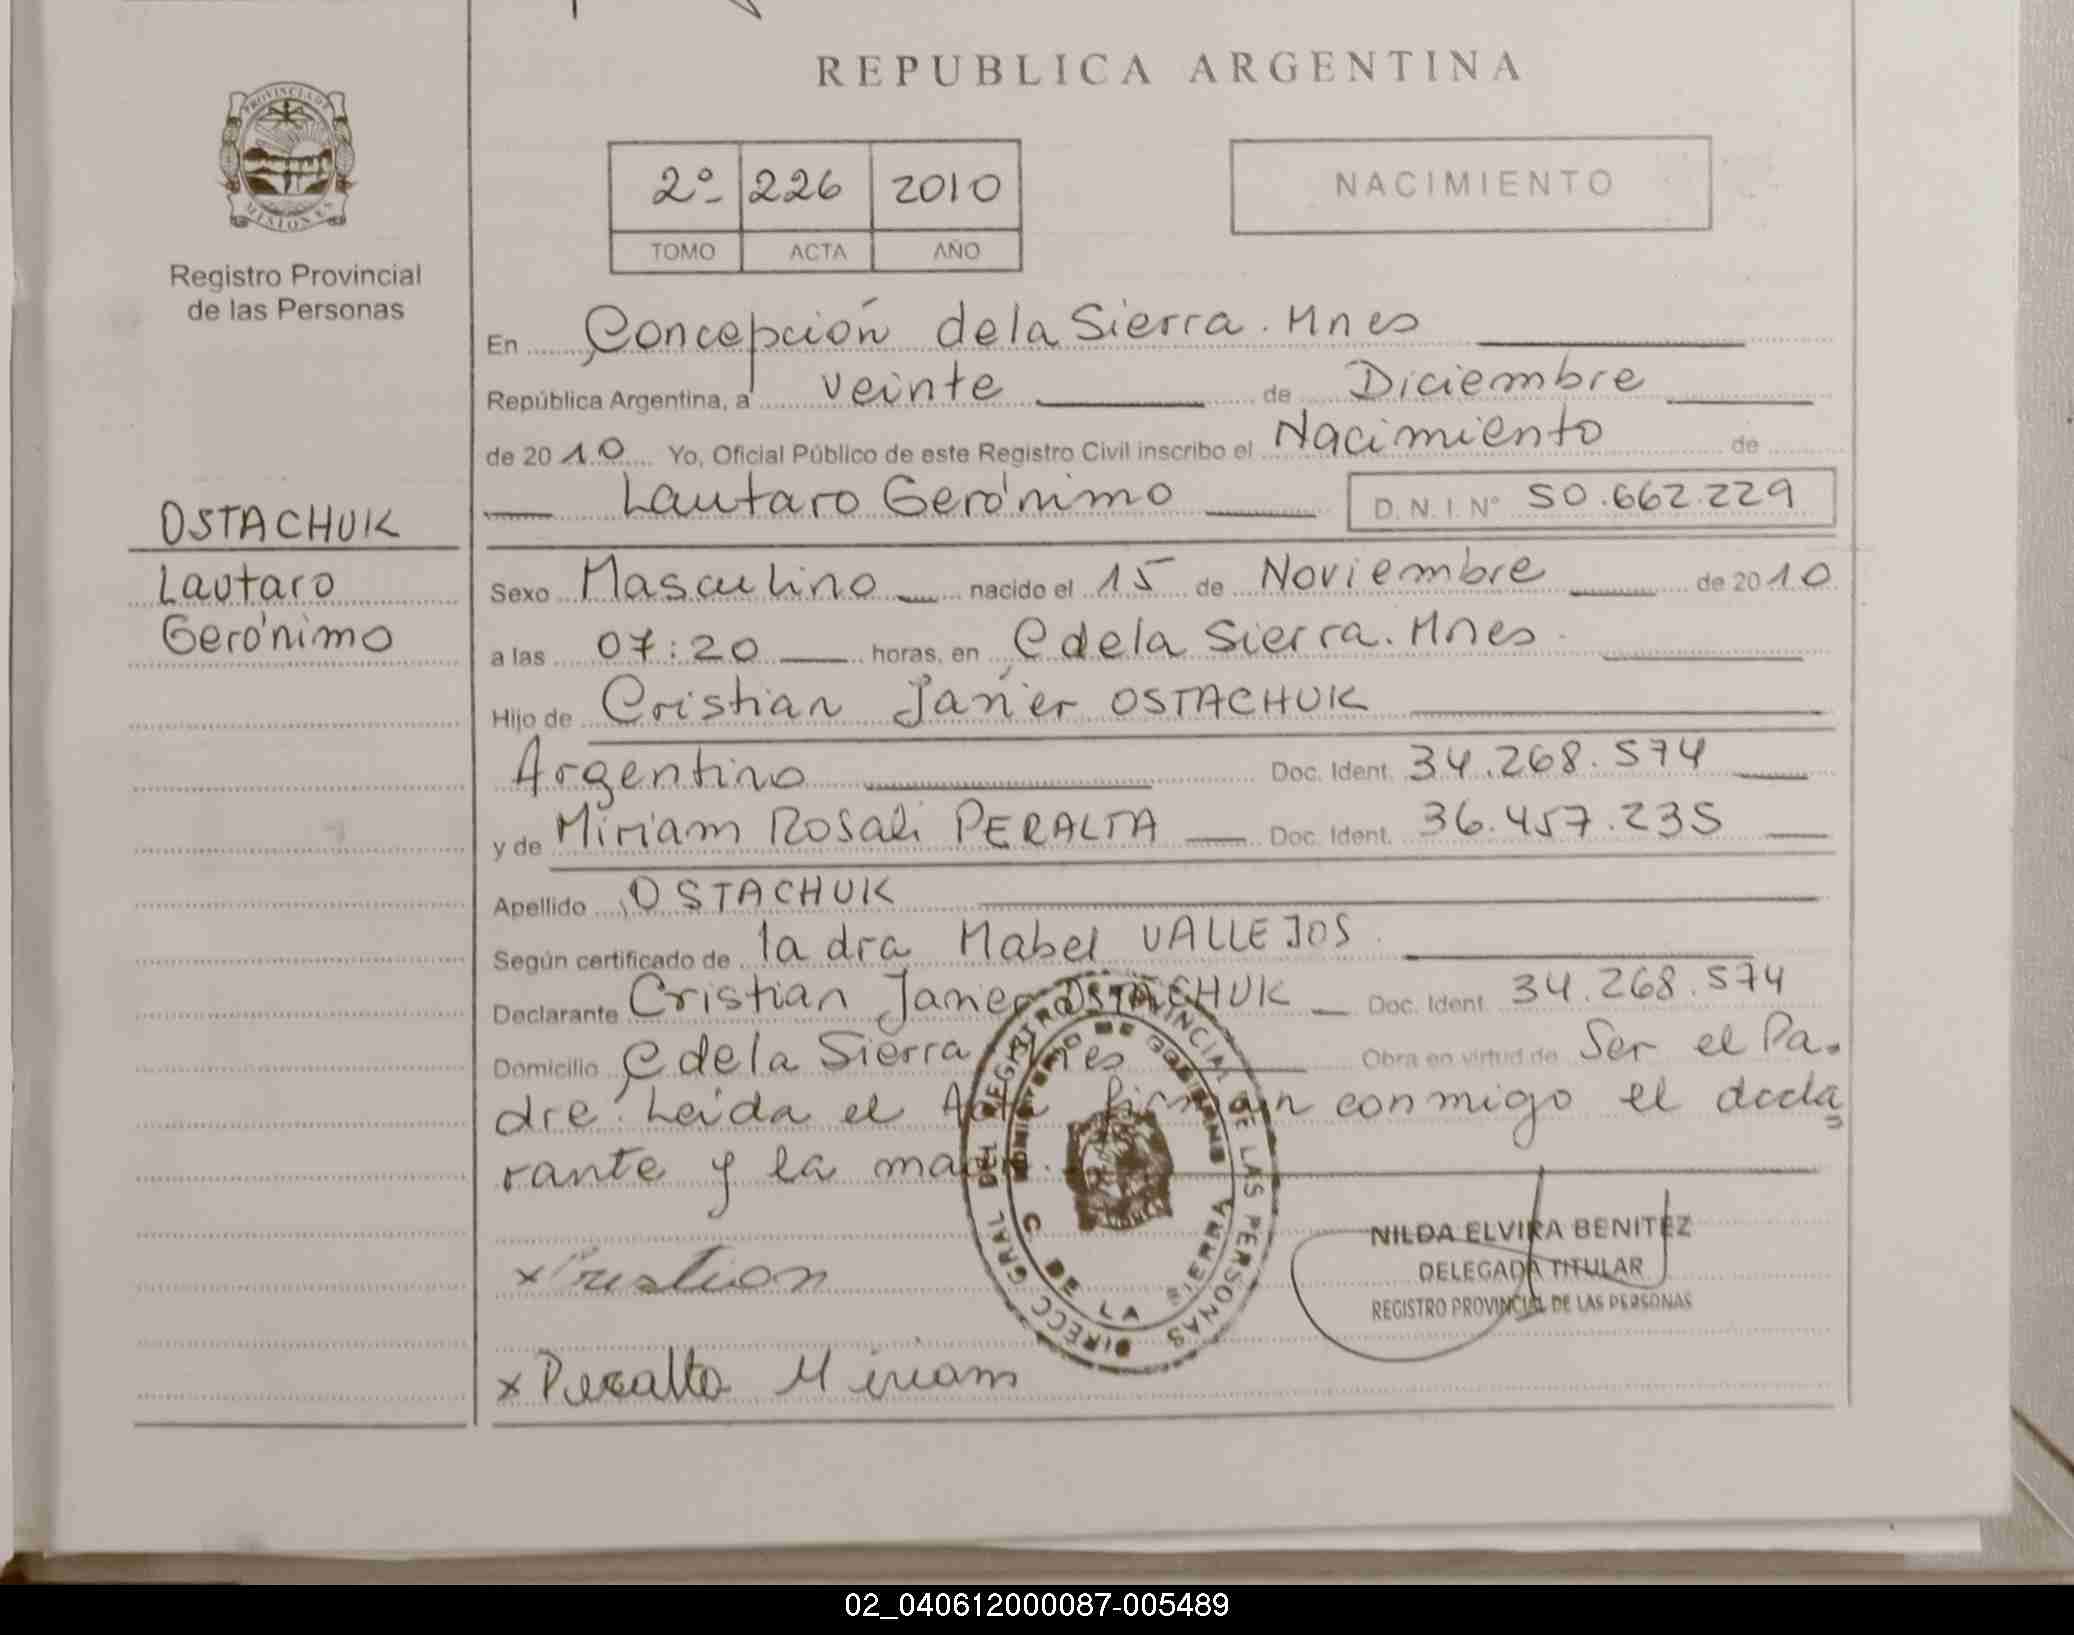 REPUBLICA ARGENTINA
PROVINCIA DE
MISIONES
Registro Provincial
de las Personas
2º 226 2010
TOMO ACTA AÑO
NACIMIENTO
En Concepción de la Sierra. Mnes
República Argentina, a veinte de Diciembre
de 2010 Yo, Oficial Público de este Registro Civil inscribo el Nacimiento de
Lautaro Gerónimo D.N.I. Nº 50.662.229
OSTACHUK
Lautaro
Gerónimo
Sexo Masculino nacido el 15 de Noviembre de 2010
a las 07:20 horas, en C de la Sierra. Mnes.
Hijo de Cristian Javier OSTACHUK
Argentino Doc. Ident. 34.268.574
y de Miriam Rosali PERALTA Doc. Ident. 36.457.235
Apellido OSTACHUK
Según certificado de la dra Mabel VALLEJOS.
Declarante Cristian Javier OSTACHUK Doc. Ident. 34.268.574
Domicilio C de la Sierra Mnes Obra en virtud de Ser el Pa-
dre. Leída el Acta firman conmigo el decla
rante y la madre.
DIRECC GRAL DEL REGISTRO PROVINCIAL DE LAS PERSONAS
MINISTERIO DE GOBIERNO
C DE LA SIERRA
NILDA ELVIRA BENITEZ
DELEGADA TITULAR
REGISTRO PROVINCIAL DE LAS PERSONAS
x Cristian
x Peralta Miriam
02_040612000087-005489